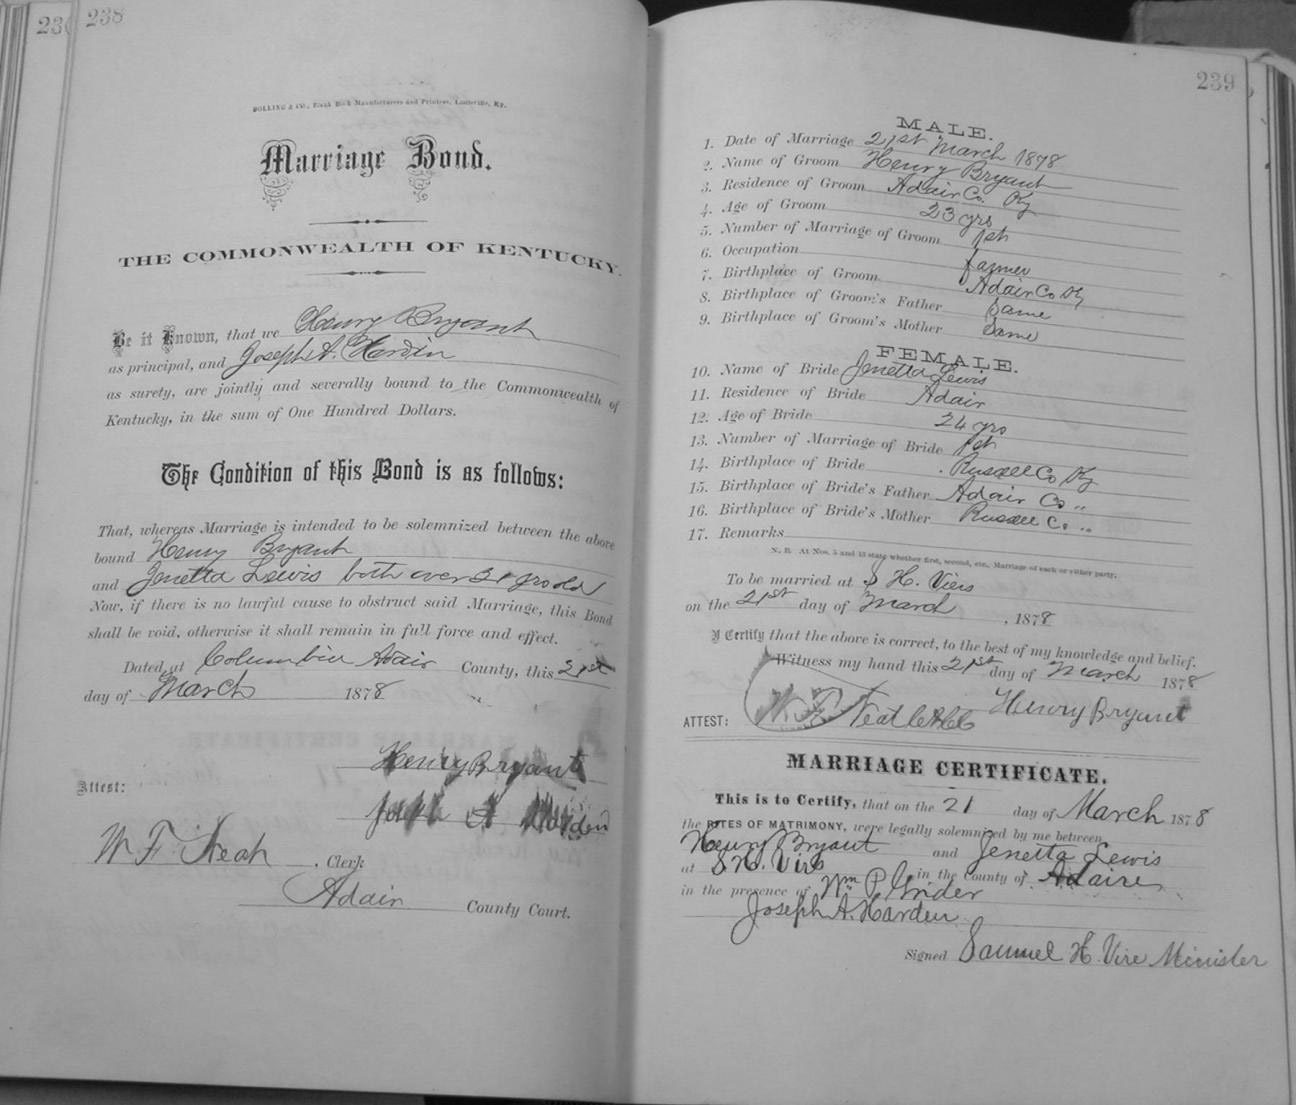 236
238
BOLLING & CO., Blank Book Manufacturers and Printers, Louisville, Ky.
Marriage Bond.
THE COMMONWEALTH OF KENTUCKY.
Be it Known, that we Henry Bryant
as principal, and Joseph A. Hardin
as surety, are jointly and severally bound to the Commonwealth of
Kentucky, in the sum of One Hundred Dollars.
The Condition of this Bond is as follows:
That, whereas Marriage is intended to be solemnized between the above
bound Henry Bryant
and Jenetta Lewis both over 21 yrs old
Now, if there is no lawful cause to obstruct said Marriage, this Bond
shall be void, otherwise it shall remain in full force and effect.
Dated at Columbia Adair County, this 21st
day of March 1878
Henry Bryant
Attest:
A Harden
W. F. Neat, Clerk
Adair County Court.
239
MALE.
1. Date of Marriage 21st March 1878
2. Name of Groom Henry Bryant
3. Residence of Groom Adair Co. Ky
4. Age of Groom 23 yrs
5. Number of Marriage of Groom 1st
6. Occupation farmer
7. Birthplace of Groom Adair Co Ky
8. Birthplace of Groom's Father Same
9. Birthplace of Groom's Mother Same
FEMALE.
10. Name of Bride Jenetta Lewis
11. Residence of Bride Adair
12. Age of Bride 24 yrs
13. Number of Marriage of Bride 1st
14. Birthplace of Bride Russell Co Ky
15. Birthplace of Bride's Father Adair Co "
16. Birthplace of Bride's Mother Russell Co "
17. Remarks
N. B. At Nos. 5 and 13 state whether first, second, etc., Marriage of each or either party.
To be married at S H. Viers
on the 21st day of March, 1878
I Certify that the above is correct, to the best of my knowledge and belief.
Witness my hand this 21st day of March 1878
Henry Bryant
ATTEST: W. F. Neat
MARRIAGE CERTIFICATE.
This is to Certify, that on the 21 day of March 1878
the RITES OF MATRIMONY, were legally solemnized by me between
Henry Bryant and Jenetta Lewis
at S. H. Virs in the County of Adair
in the presence of Wm P. Grider
Joseph A. Harden
Signed Samuel H. Vire Minister